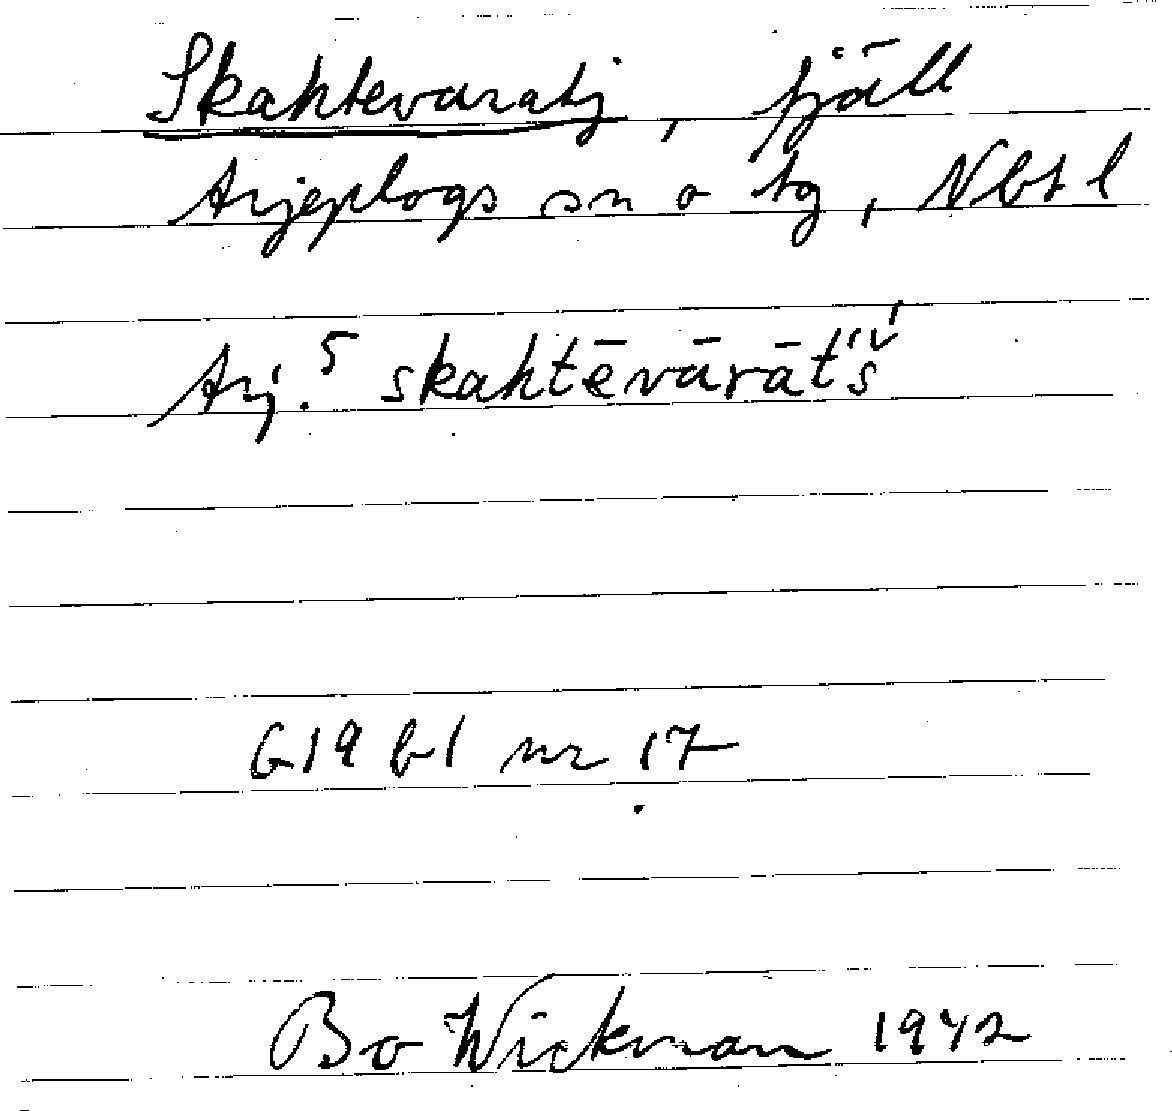 Skahtevaratj, fjäll
Arjeplogs sn o tg, Nbt l
Arj.⁵ skahtēvārāt́š́
G19 bl nr 17
Bo Wickman 1942